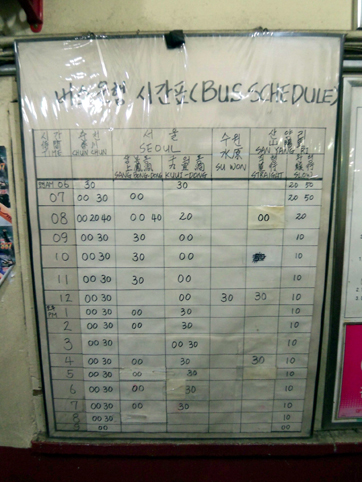 버스운행 시간표(BUS SCHEDULE)
시간 춘천 서울 수원 산양리
時間 春川 SEOUL 水原 山陽里
TIME CHUN CHUN SANG BONG-DONG KUUI-DONG SU WON SAN YANG RI
STRAIGHT SLOW
AM 06 30 30 20 50
07 00 30 00 20 50
08 00 20 40 00 40 20 00 20
09 00 30 30 00 10
10 00 30 30 00 10
11 00 30 30 00 10
12 00 30 00 30 30 10
PM 1 00 30 00 30 10
2 00 30 00 30 10
3 00 30 00 30 10
4 00 30 00 30 30 10
5 00 30 00 30 10
6 00 30 00 30 10
7 00 30 00 30 10
8 00 30 10
9 00 00